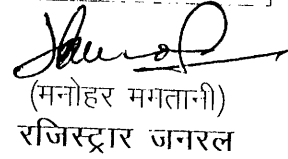 (मनोहर मगतानी)
रजिस्ट्रार जनरल